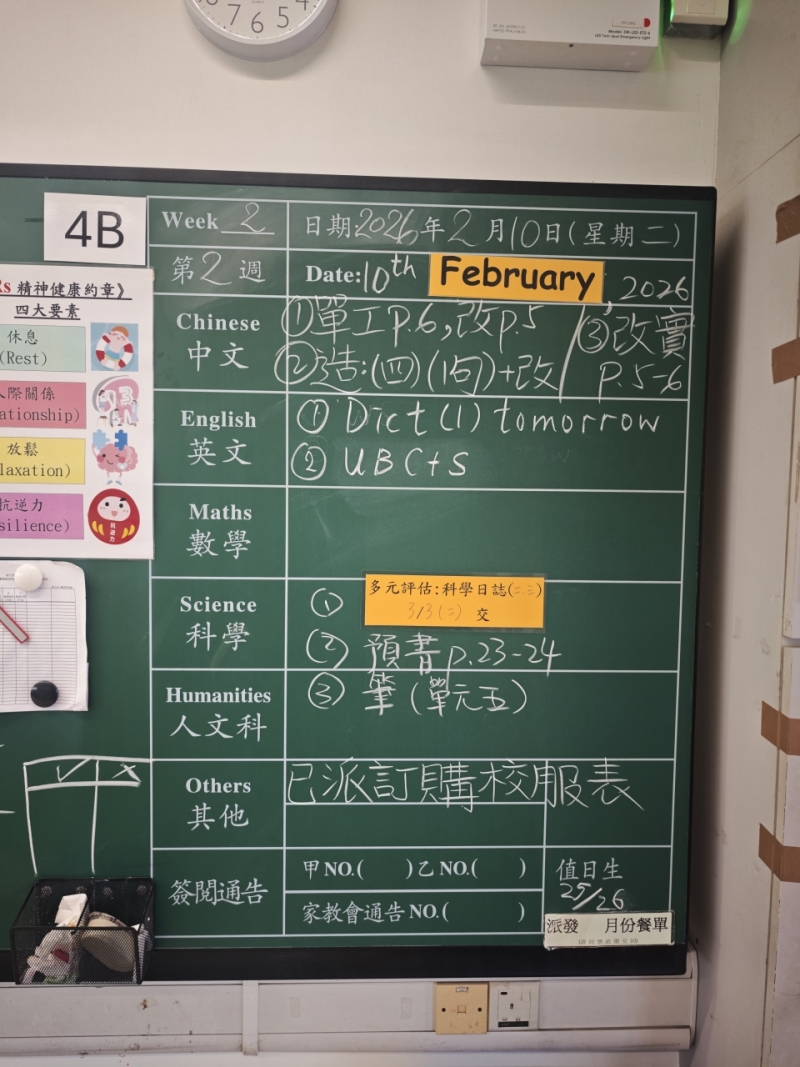 7 6 5 4
4B
Week 2
日期:2026年2月10日(星期二)
第2週
Date:10th February, 2026
Rs 精神健康約章》
四大要素
休息
(Rest)
人際關係
ationship)
放鬆
laxation)
抗逆力
silience)
Chinese
中文
①單工p.6,改p.5
②造:(四)(1句)+改
③改實
p.5-6
English
英文
① Dict (1) tomorrow
② UBC+S
Maths
數學
Science
科學
① 多元評估:科學日誌(二.三)
3/3(二) 交
② 預書p.23-24
Humanities
人文科
③ 筆(單元五)
Others
其他
已派訂購校服表
簽閱通告
甲NO.( )乙NO.( )
家教會通告NO.( )
值日生
25/26
派發 月份餐單